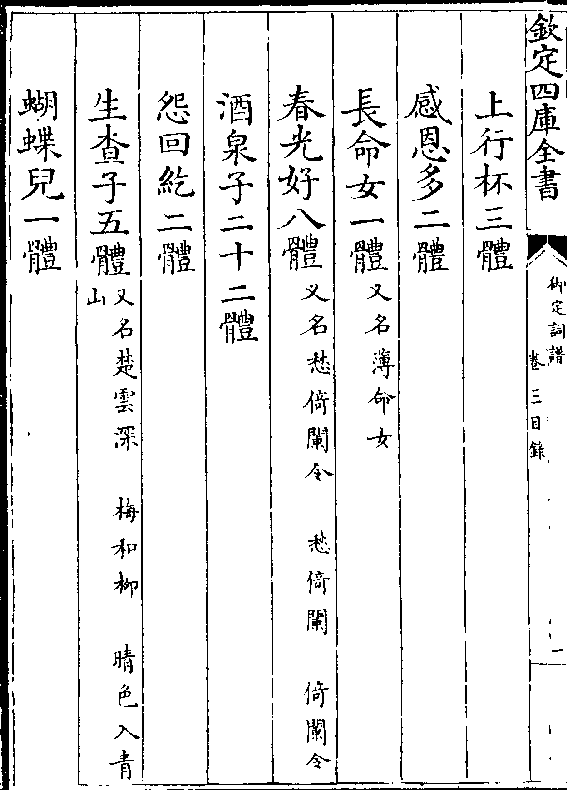 欽定四庫全書
御定詞譜
卷三目錄
一
上行杯三體
感恩多二體
長命女一體 又名薄命女
春光好八體 又名愁倚闌令 愁倚闌 倚闌令
酒泉子二十二體
怨回紇二體
生查子五體 又名楚雲深 梅和柳 晴色入青
山
蝴蝶兒一體